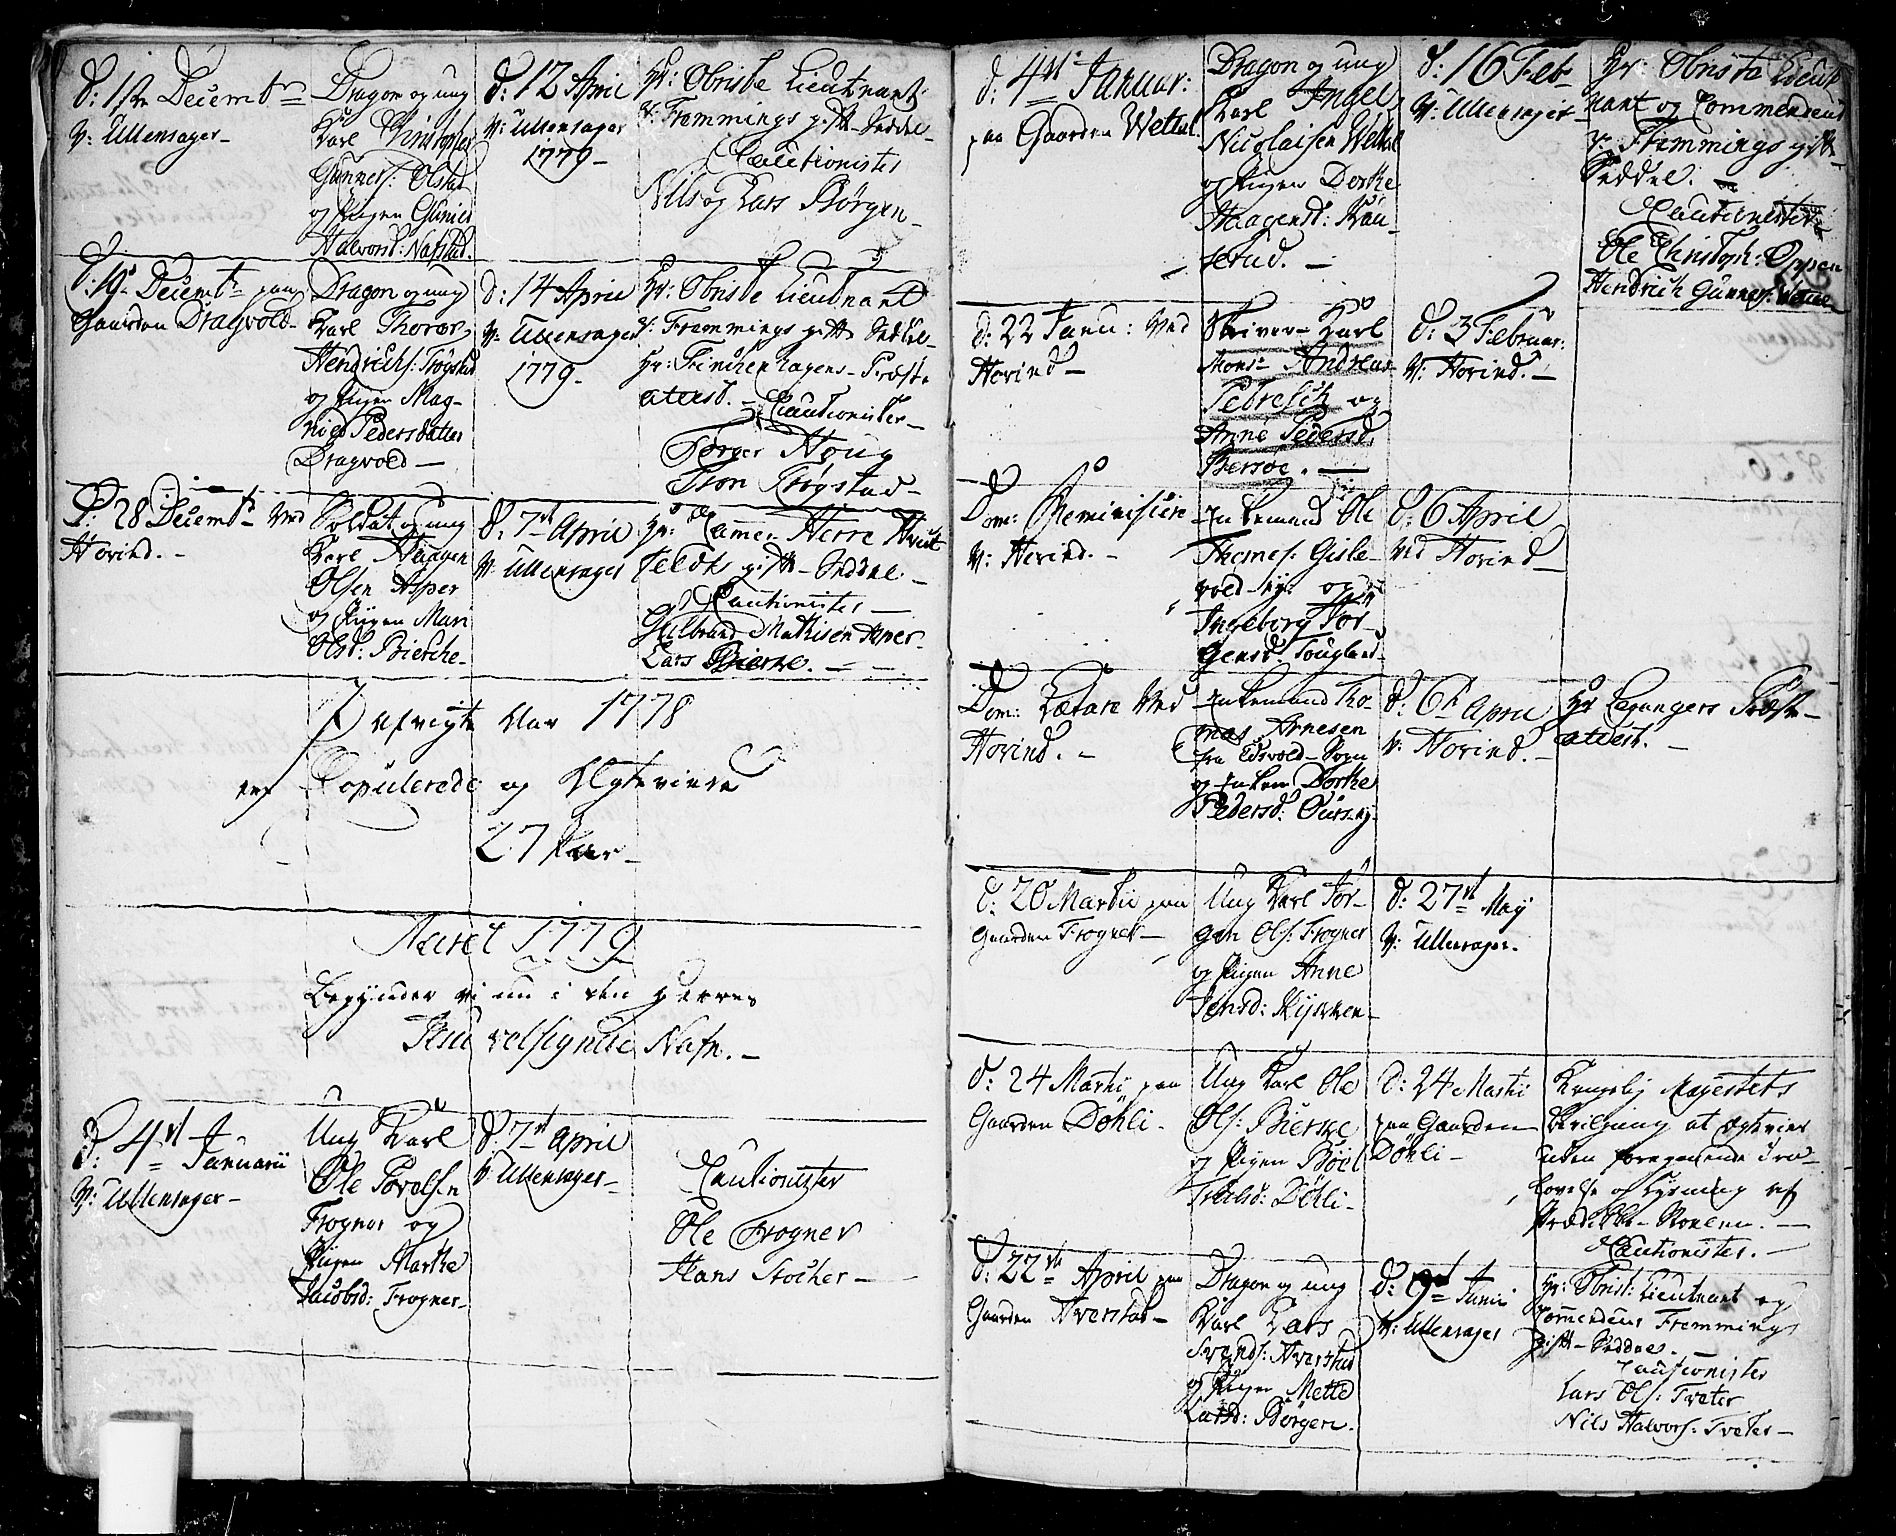 d: 1ste Decembr
V: Ullensager
Dragon og ung
Karl Christopher
Gunners: Olstad
og Pigen
Halvorsd: Nafstad.
d: 12 April
V: Ullensager
1779
Hr: Obriste Lieutnant
V: Fremmings gifte Seddel
Cautionister
Nils og Lars Børgen
d: 19de Decembr paa
Gaarden Dragvold
Dragon og ung
Karl Thorer
Hendrichs: Trøgstad
og Pigen Mag-
nild Pedersdatter
Dragvold
d: 14 April
V: Ullensager
1779
Hr: Obriste Lieutnant
V: Fremmings gifte Seddel
Hr: Finchenhagens Præste
attest.
Cautionister
Torger Houg
Iron Trøgstad
d: 28 Decembr Ved
Hovind.
Soldat og ung
Karl Haagen
Olsen Asper
og Pigen Mari
Olsd: Bierche
d: 7de April
V: Ullensager
Hr: Cammer Herre
feldts gifte Seddel
Cautionister
Gulbrand Mathisen Asper
Lars Bierke.
I afvigte Aar 1778
ere Copulerede og Ægteviede
27 Par
Aaret 1779
Begynder vi nu i den Herres
Jesu velsignede Nafn.
d: 4de Januarii
V: Ullensager
Ung Karl
Ole Povelsen
Frogner og
Pigen Marthe
Jacobsd: Frogner
d: 7de April
V: Ullensager
Cautionister
Ole Frogner
Hans Stocher
d: 4de Januar:
paa Gaarden Wettal
Dragon og ung
Karl Ingel
Nicolaisen Wettal
og Pigen Dorthe
Haagensd: Kau-
serud.
d: 16 Feb
V: Ullensager
Hr: Obriste Lieut-
nant og Commendeur
V: Fremmings gifte
Seddel.
Cautionister
Ole Christoph: Oppen
Hendrich Gunners:
d: 22 Janu: Ved
Hovind
Skriver-Karl
Mons: Andreas
Petersch og
Anne Pedersd.
Bersøe.
d: 3 Februar:
V: Hovind.
Dom: Reminiscere
V: Hovind.
Enkemand Ole
Thomes: Gisle-
vold-ej: og
Ingeborg Jør-
gensd Tougland
d: 6 April
Ved Hovind
Dom: Lætare Ved
Hovind.
Enkemand Tho-
mas Arnesen
fra Edsvold-Sogn
og Enken Dorthe
Pedersd: Ours-ej
d: 6te April
V: Hovind.
Hr Legangers Præste-
attest.
d: 20 Martii paa
Gaarden Frogner
Ung Karl Jør-
gen Ols: Frogner
og Pigen Anne
Jensd: Kjøkken
d: 27de Maij
V: Ullensager.
d: 24 Martii paa
Gaarden Döhli
Ung Karl Ole
Ols: Bierke
og Pigen Böel
Trulsd: Döhli
d: 24 Martii
paa Gaarden
Döhli
Kongelig Mayestets
Bevilgning at egtevies
uden foregaaende Tro-
lovelse og Lysning af
Prædike-Stolen.
Cautionister.
d: 22de April paa
Gaarden Hverstad
Dragon og ung
Karl Lars
Svends: Hverstad
og Pigen Mette
Larsd: Börgen.
d: 9de Junii
V: Ullensager
Hr: Obrist: Lieutnant og
Commendeur Fremmings
gifte-Seddel.
Cautionister
Lars Ols: Tveter
Nils Halvors: Tveter